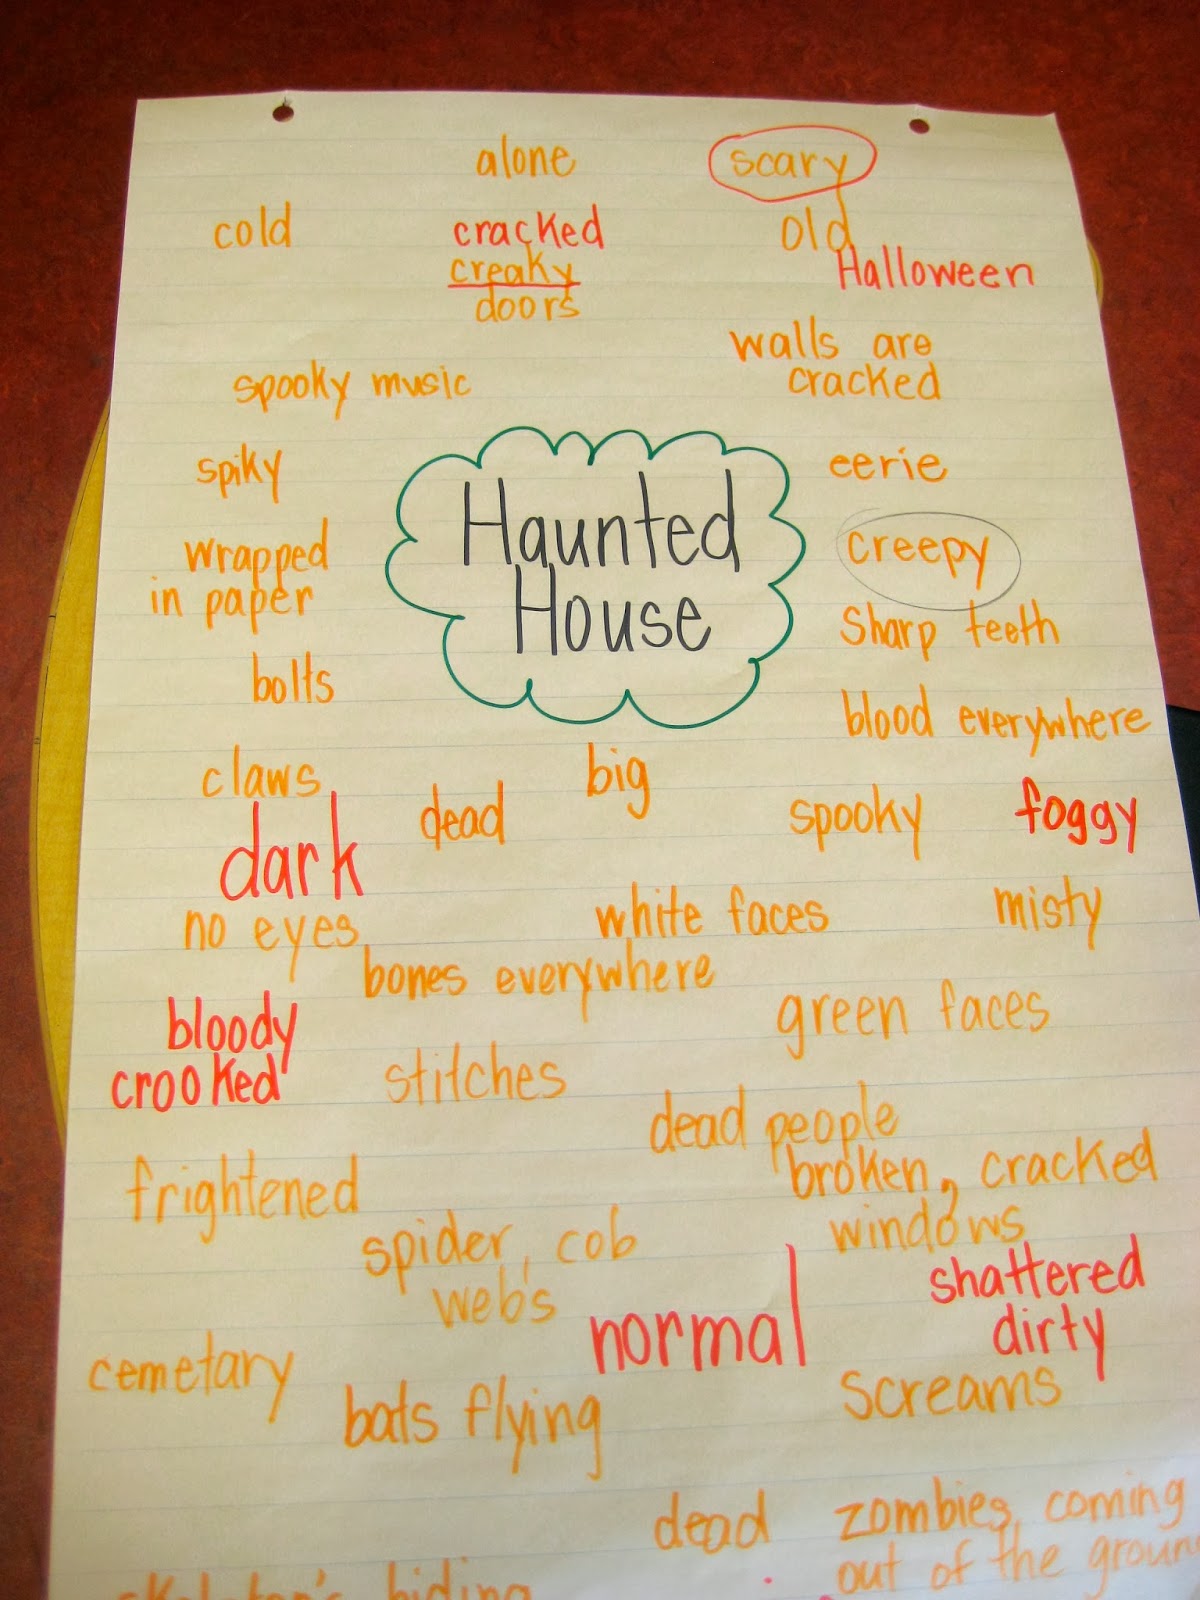 alone
scary
cold
cracked
old
creaky
Halloween
doors
walls are
cracked
spooky music
spiky
eerie
Haunted
House
wrapped
in paper
creepy
sharp teeth
bolts
blood everywhere
claws
big
dead
spooky
foggy
dark
no eyes
white faces
misty
bones everywhere
bloody
crooked
green faces
stitches
dead people
broken, cracked
windows
frightened
spider, cob
web's
shattered
dirty
normal
cemetary
bats flying
screams
dead
zombies coming
out of the groun
skeleton's hiding